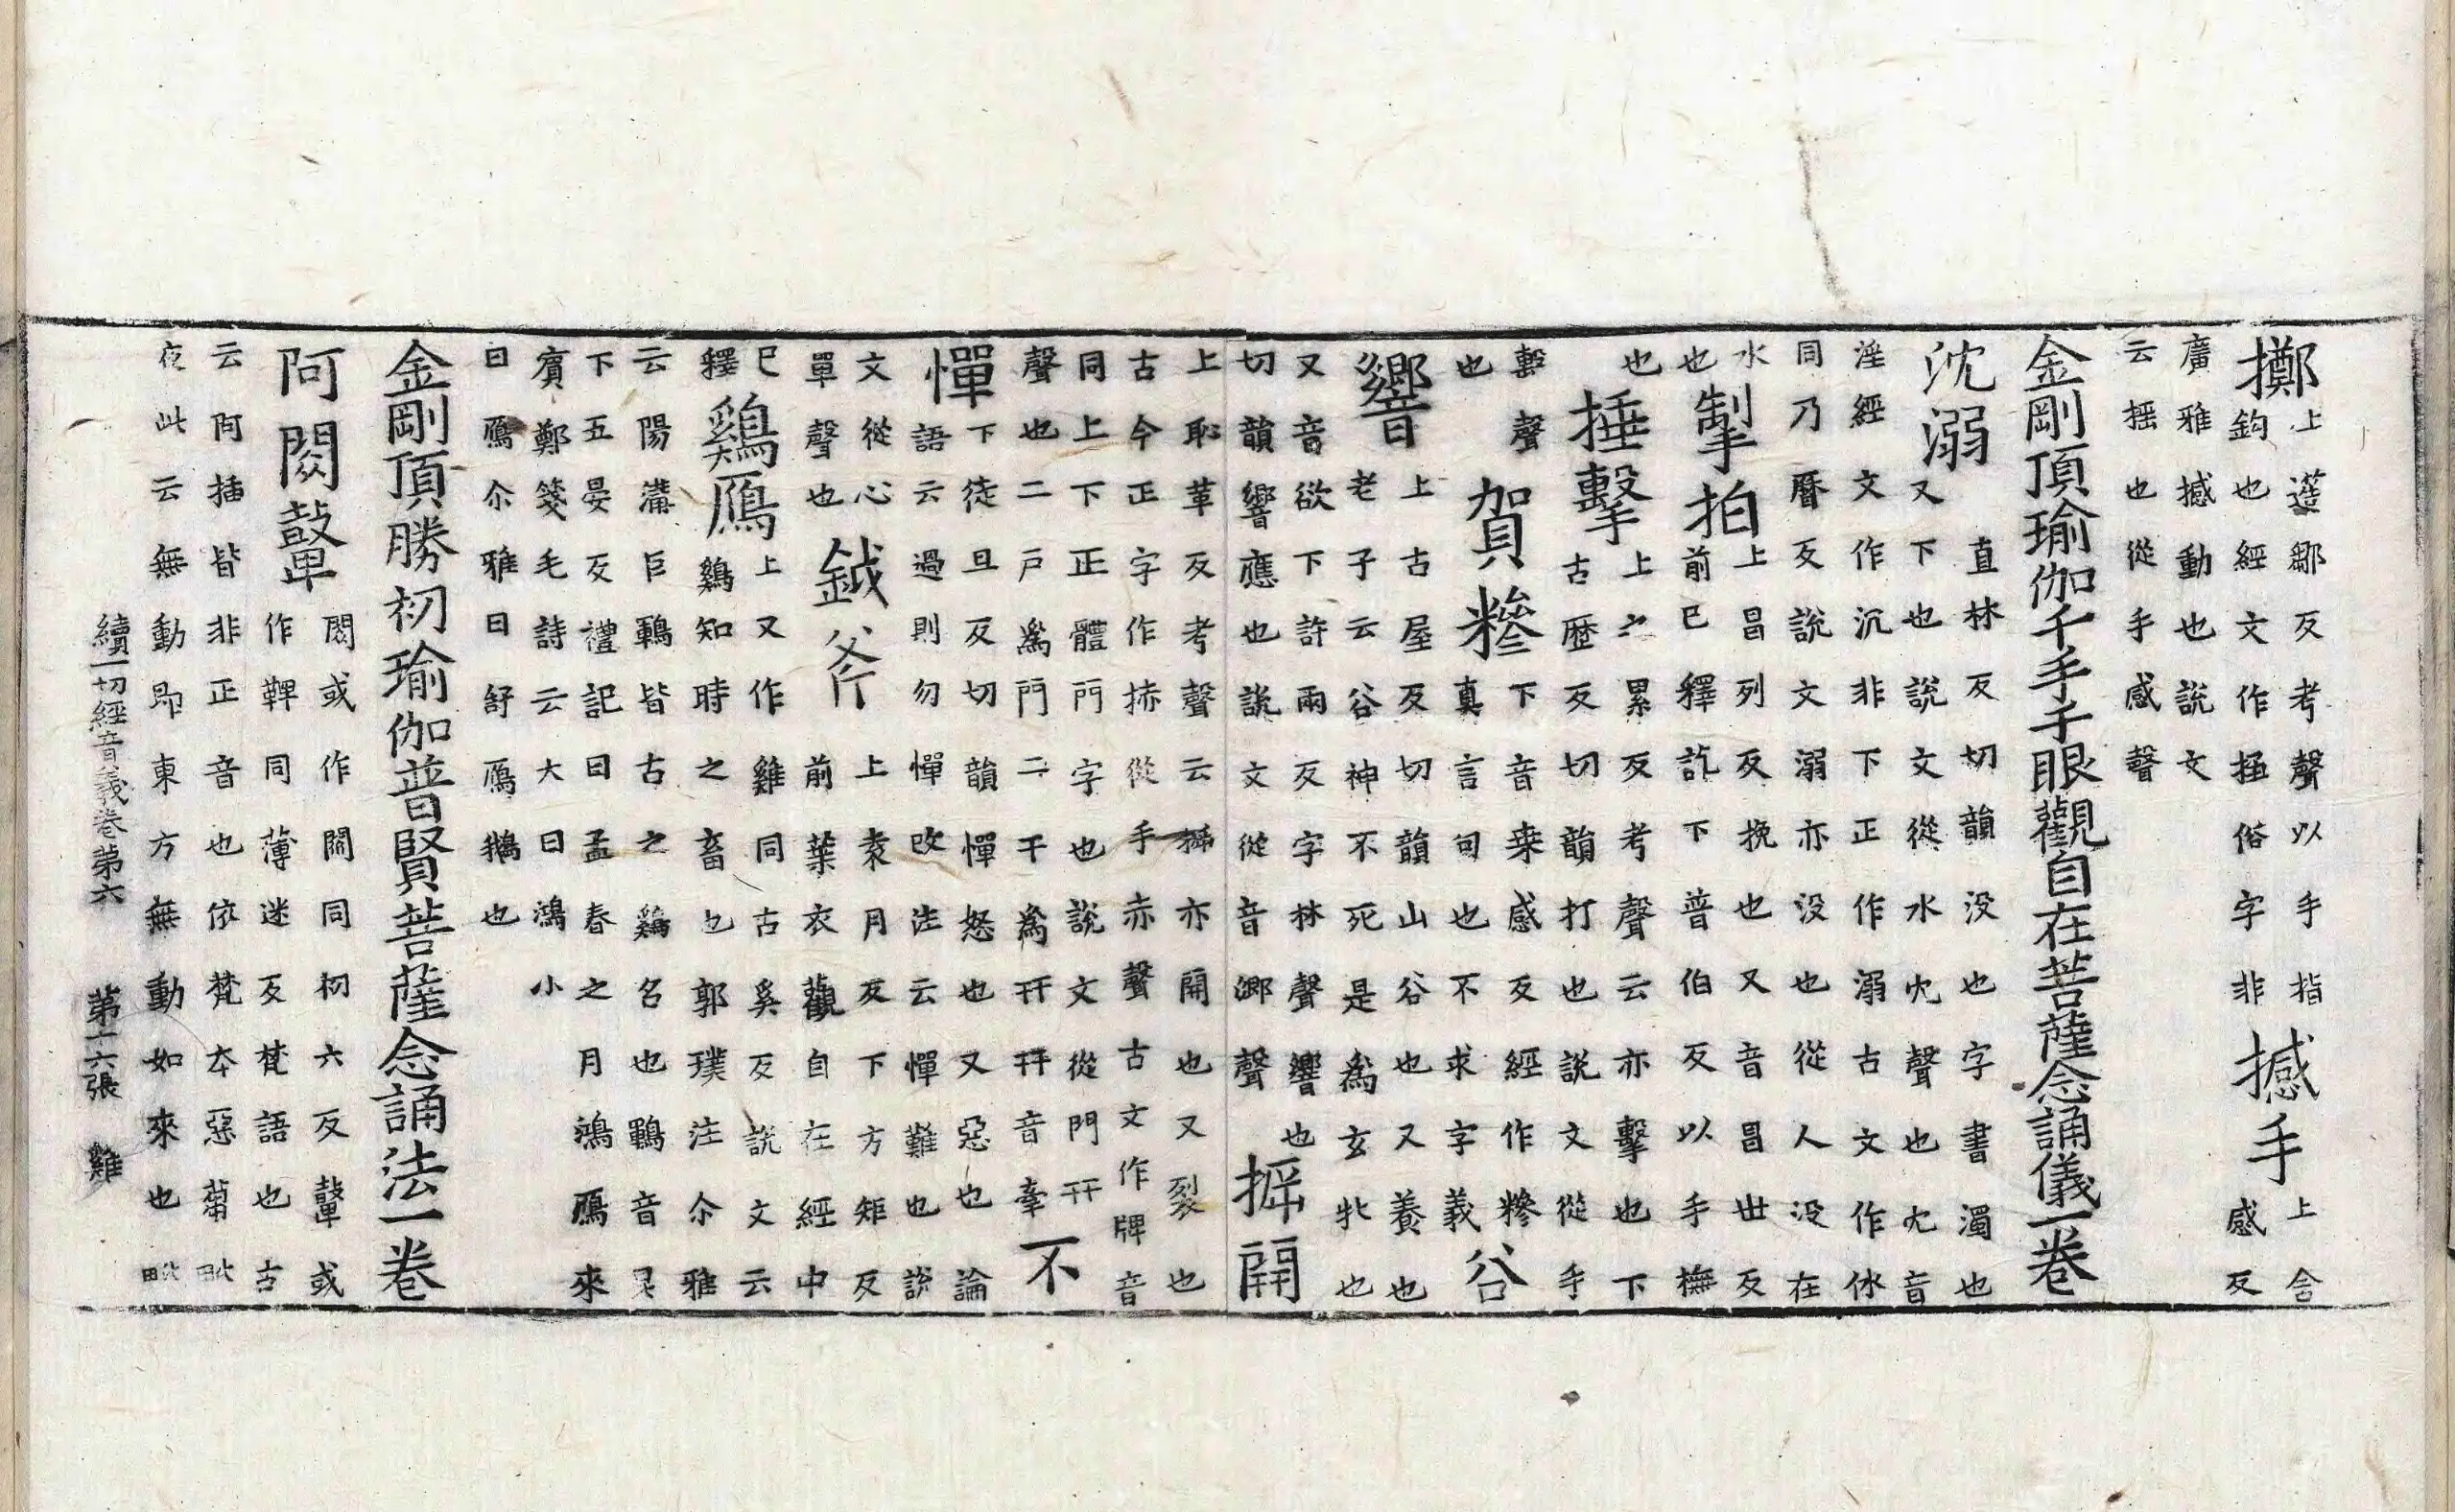 擲上𨗈鄒反考聲以手指
鈎也經文作㧌俗字非撼手上含
感反
廣雅撼動也說文
云揺也從手感聲
金剛頂瑜伽千手千眼觀自在菩薩念誦儀一卷
沈溺直林反切韻没也字書濁也
又下也說文從水冘聲也冘音
淫經文作沉非下正作溺古文作㲻
同乃曆反說文溺亦没也從人没在
水
也掣拍上昌列反挽也又音昌世反
前已釋訖下普伯反以手撫
也捶擊上之累反考聲云亦擊也下
古歴反切韻打也說文從手
毄聲
也賀糝下音桒感反經作糝
真言句也不求字義谷
響上古屋反切韻山谷也又養也
老子云谷神不死是為玄牝也
又音欲下許兩反字林聲響也
切韻響應也說文從音鄉聲㧗開
上恥革反考聲云㧗亦開也又裂也
古今正字作捇從手赤聲古文作牌音
同上下正體門字也說文從門幵
聲也二戸為門二干為幵幵音牽不
憚下徒旦反切韻憚怒也又惡也論
語云過則勿憚改注云憚難也說
文從心
單聲也鉞斧上袁月反下方矩反
前葉衣觀自在經中
已
釋鷄鴈上又作雞同古奚反說文云
鷄知時之畜也郭璞注尒雅
云陽溝巨鶤皆古之鷄名也鶤音昆
下五晏反禮記曰孟春之月鴻鴈來
賓鄭箋毛詩云大曰鴻小
曰鴈尒雅曰舒鴈鵝也
金剛頂勝初瑜伽普賢菩薩念誦法一卷
阿閦鼙閦或作閦同初六反鼙或
作鞞同薄迷反梵語也古
云阿插皆非正音也依梵本惡蒭毗
夜此云無動即東方無動如來也毗
續一切經音義卷第六 第十六張 雞